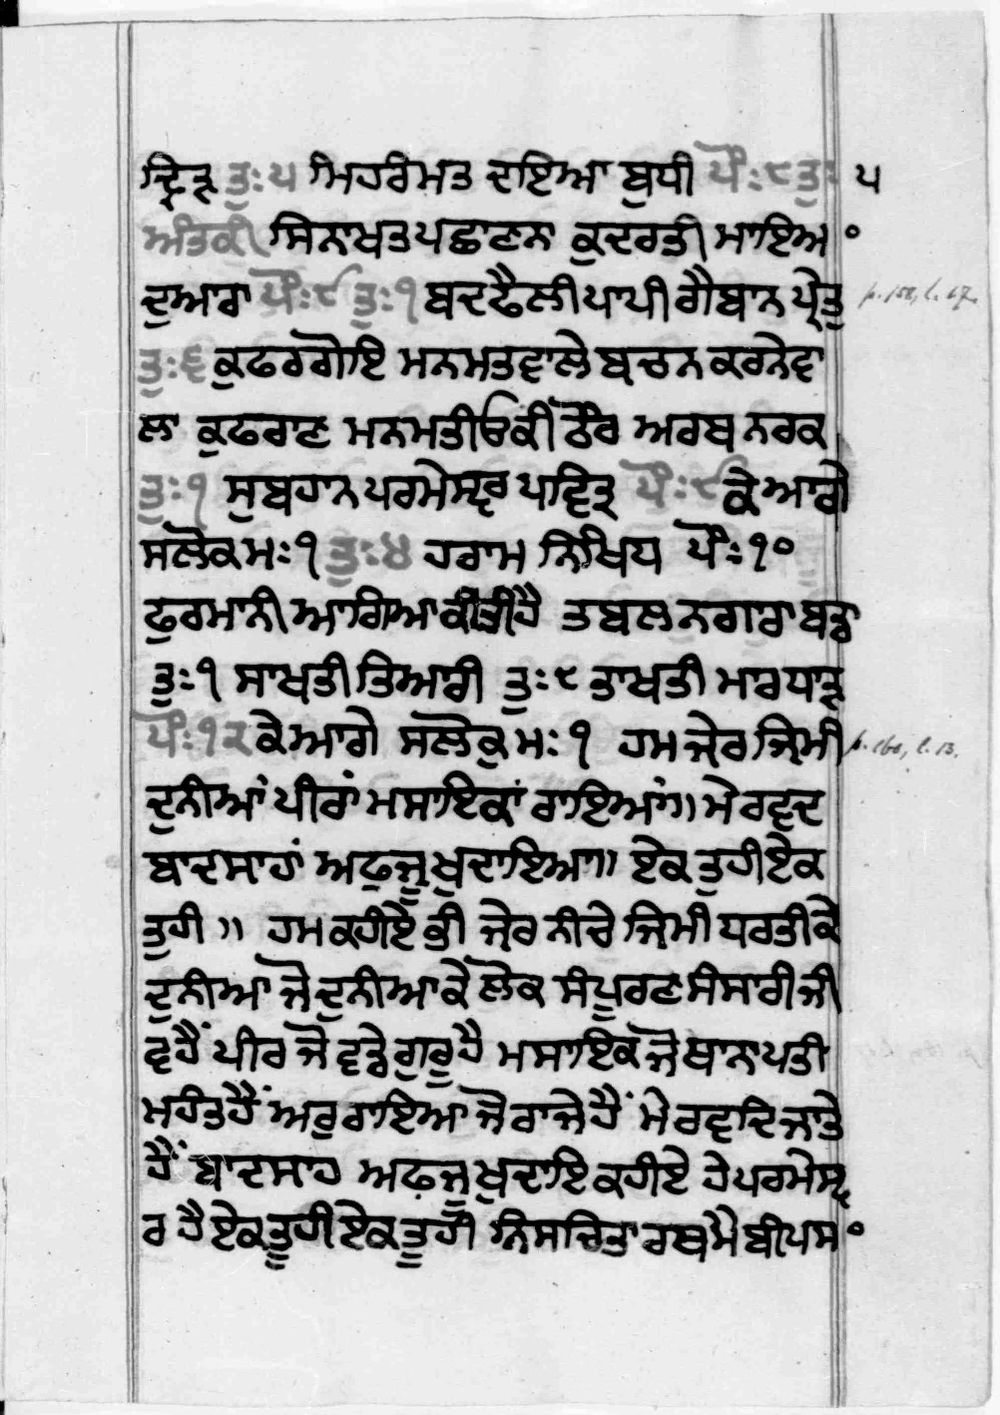 ਦ੍ਰਿੜ ਤੁਃ ੫ ਮਿਹਰਿਮਤ ਦਇਆ ਬੁਧੀ ਪੌਃ ੮ ਤੁਃ ੫
ਅੰਤਕੀ ਸਿਨਾਖਤ ਪਛਾਣਨ ਕੁਦਰਤੀ ਮਾਇਅ °
ਦੁਆਰਾ ਪੌਃ ੮ ਤੁਃ ੧ ਬਦਫੈਲੀ ਪਾਪੀ ਗੈਬਾਨ ਪ੍ਰੇਤੁ p. 158, l. 67.
ਤੁਃ ੬ ਕੁਫਰਗੋਇ ਮਨਮਤਵਾਲੇ ਬਚਨ ਕਰਨੇਵਾ
ਲਾ ਕੁਫਰਾਣ ਮਨਮਤੀਓਕੀ ਠੌਰ ਅਰਥ ਨਰਕ
ਤੁਃ ੧ ਸੁਬਹਾਨ ਪਰਮੇਸ੍ਵਰ ਪਵਿਤ੍ਰ ਪੌਃ ੮ ਕੇ ਆਗੇ
ਸਲੋਕ ਮਃ ੧ ਤੁਃ ੪ ਹਰਾਮ ਨਿਖਿਧ ਪੌਃ ੧੦
ਫੁਰਮਾਨੀ ਆਗਿਆ ਕੀਤੀ ਹੈ ਤਬਲ ਨਗਾਰਾ ਬਤ੍ਰਾ
ਤੁਃ ੧ ਸਾਖਤੀ ਤਿਆਰੀ ਤੁਃ ੯ ਤਾਖਤੀ ਮਾਰਧਾੜ
ਪੌਃ ੧੨ ਕੇ ਆਗੇ ਸਲੋਕੁ ਮਃ ੧ ਹਮ ਜੇਰ ਜਿਮੀ p. 160, l. 13.
ਦੁਨੀਆਂ ਪੀਰਾਂ ਮਸਾਇਕਾਂ ਰਾਇਆਂ॥ ਮੇ ਰਵਦ
ਬਾਦਸਾਹਾਂ ਅਫਜੂ ਖੁਦਾਇਆ॥ ਏਕ ਤੁਹੀ ਏਕ
ਤੁਹੀ ॥ ਹਮ ਕਹੀਏ ਭੀ ਜੇਰ ਨੀਚੇ ਜਿਮੀ ਧਰਤੀ ਕੇ
ਦੁਨੀਆ ਜੋ ਦੁਨੀਆ ਕੇ ਲੋਕ ਸੰਪੂਰਣ ਸੰਸਾਰੀ ਜੀ
ਵ ਹੈਂ ਪੀਰ ਜੋ ਵਡੇ ਗੁਰੂ ਹੈ ਮਸਾਇਕ ਜੋ ਥਾਨਾਪਤੀ
ਮਹੰਤ ਹੈਂ ਅਰੁ ਰਾਇਆ ਜੋ ਰਾਜੇ ਹੈਂ ਮੇ ਰਵਾਦਿ ਜਾਤੇ
ਹੈਂ ਬਾਦਸਾਹ ਅਫਜੂ ਖੁਦਾਇ ਕਹੀਏ ਹੇ ਪਰਮੇਸ੍ਵ
ਰ ਹੈ ਏਕ ਤੂਹੀ ਏਕ ਤੂਹੀ ਨਿਸਚਿਤਾਰਥ ਮੈ ਬੀਪਸ °